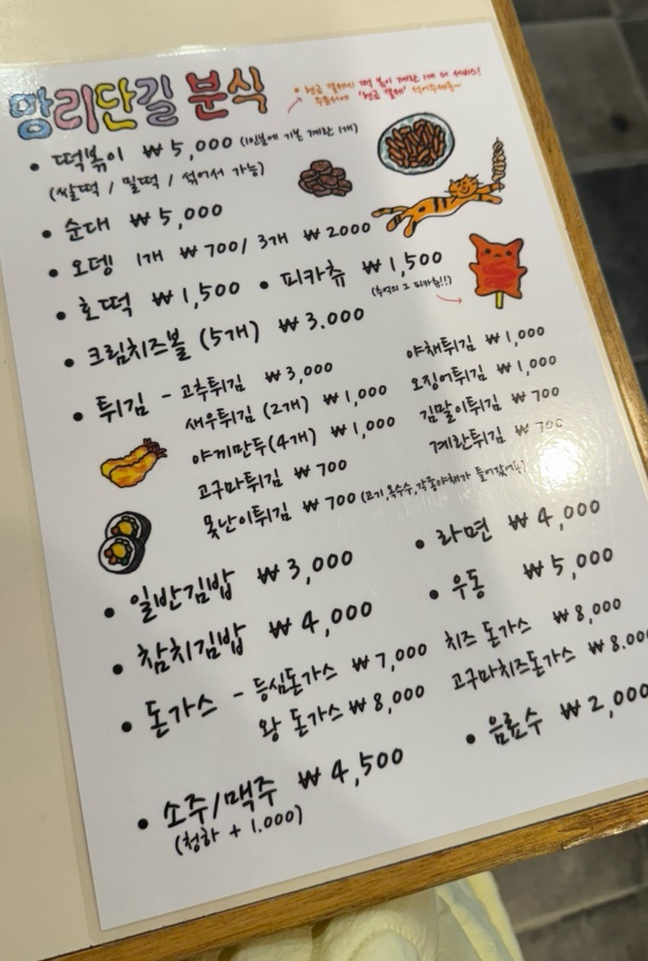 앙리단길 분식
현금 결제시 떡볶이 계란 1개 더 서비스!
주문서에 '현금 결제' 적어주세용~
• 떡볶이 ₩5,000 (1인분에 기본 계란 1개)
(쌀떡 / 밀떡 / 섞어서 가능)
• 순대 ₩5,000
• 오뎅 1개 ₩700/ 3개 ₩2000
• 호떡 ₩1,500 • 피카츄 ₩1,500
(추억의 그 피카츄!!)
• 크림치즈볼 (5개) ₩3.000
• 튀김 - 고추튀김 ₩3,000 야채튀김 ₩1,000
새우튀김 (2개) ₩1,000 오징어튀김 ₩1,000
야끼만두(4개) ₩1,000 김말이튀김 ₩700
고구마튀김 ₩700 계란튀김 ₩700
못난이튀김 ₩700 (고기,옥수수,각종야채가 들어갔어용)
• 일반김밥 ₩3,000 • 라면 ₩4,000
• 참치김밥 ₩4,000 • 우동 ₩5,000
• 돈가스 - 등심돈가스 ₩7,000 치즈 돈가스 ₩8,000
왕 돈가스 ₩8,000 고구마치즈돈가스 ₩8.000
• 소주/맥주 ₩4,500 • 음료수 ₩2,000
(청하 + 1.000)